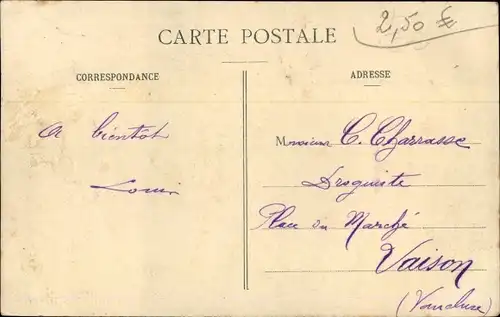 CARTE POSTALE
2,50 €
CORRESPONDANCE
ADRESSE
A bientôt
Louis
Monsieur C. Charrasse
Droguiste
Place du Marché
Vaison
(Vaucluse)